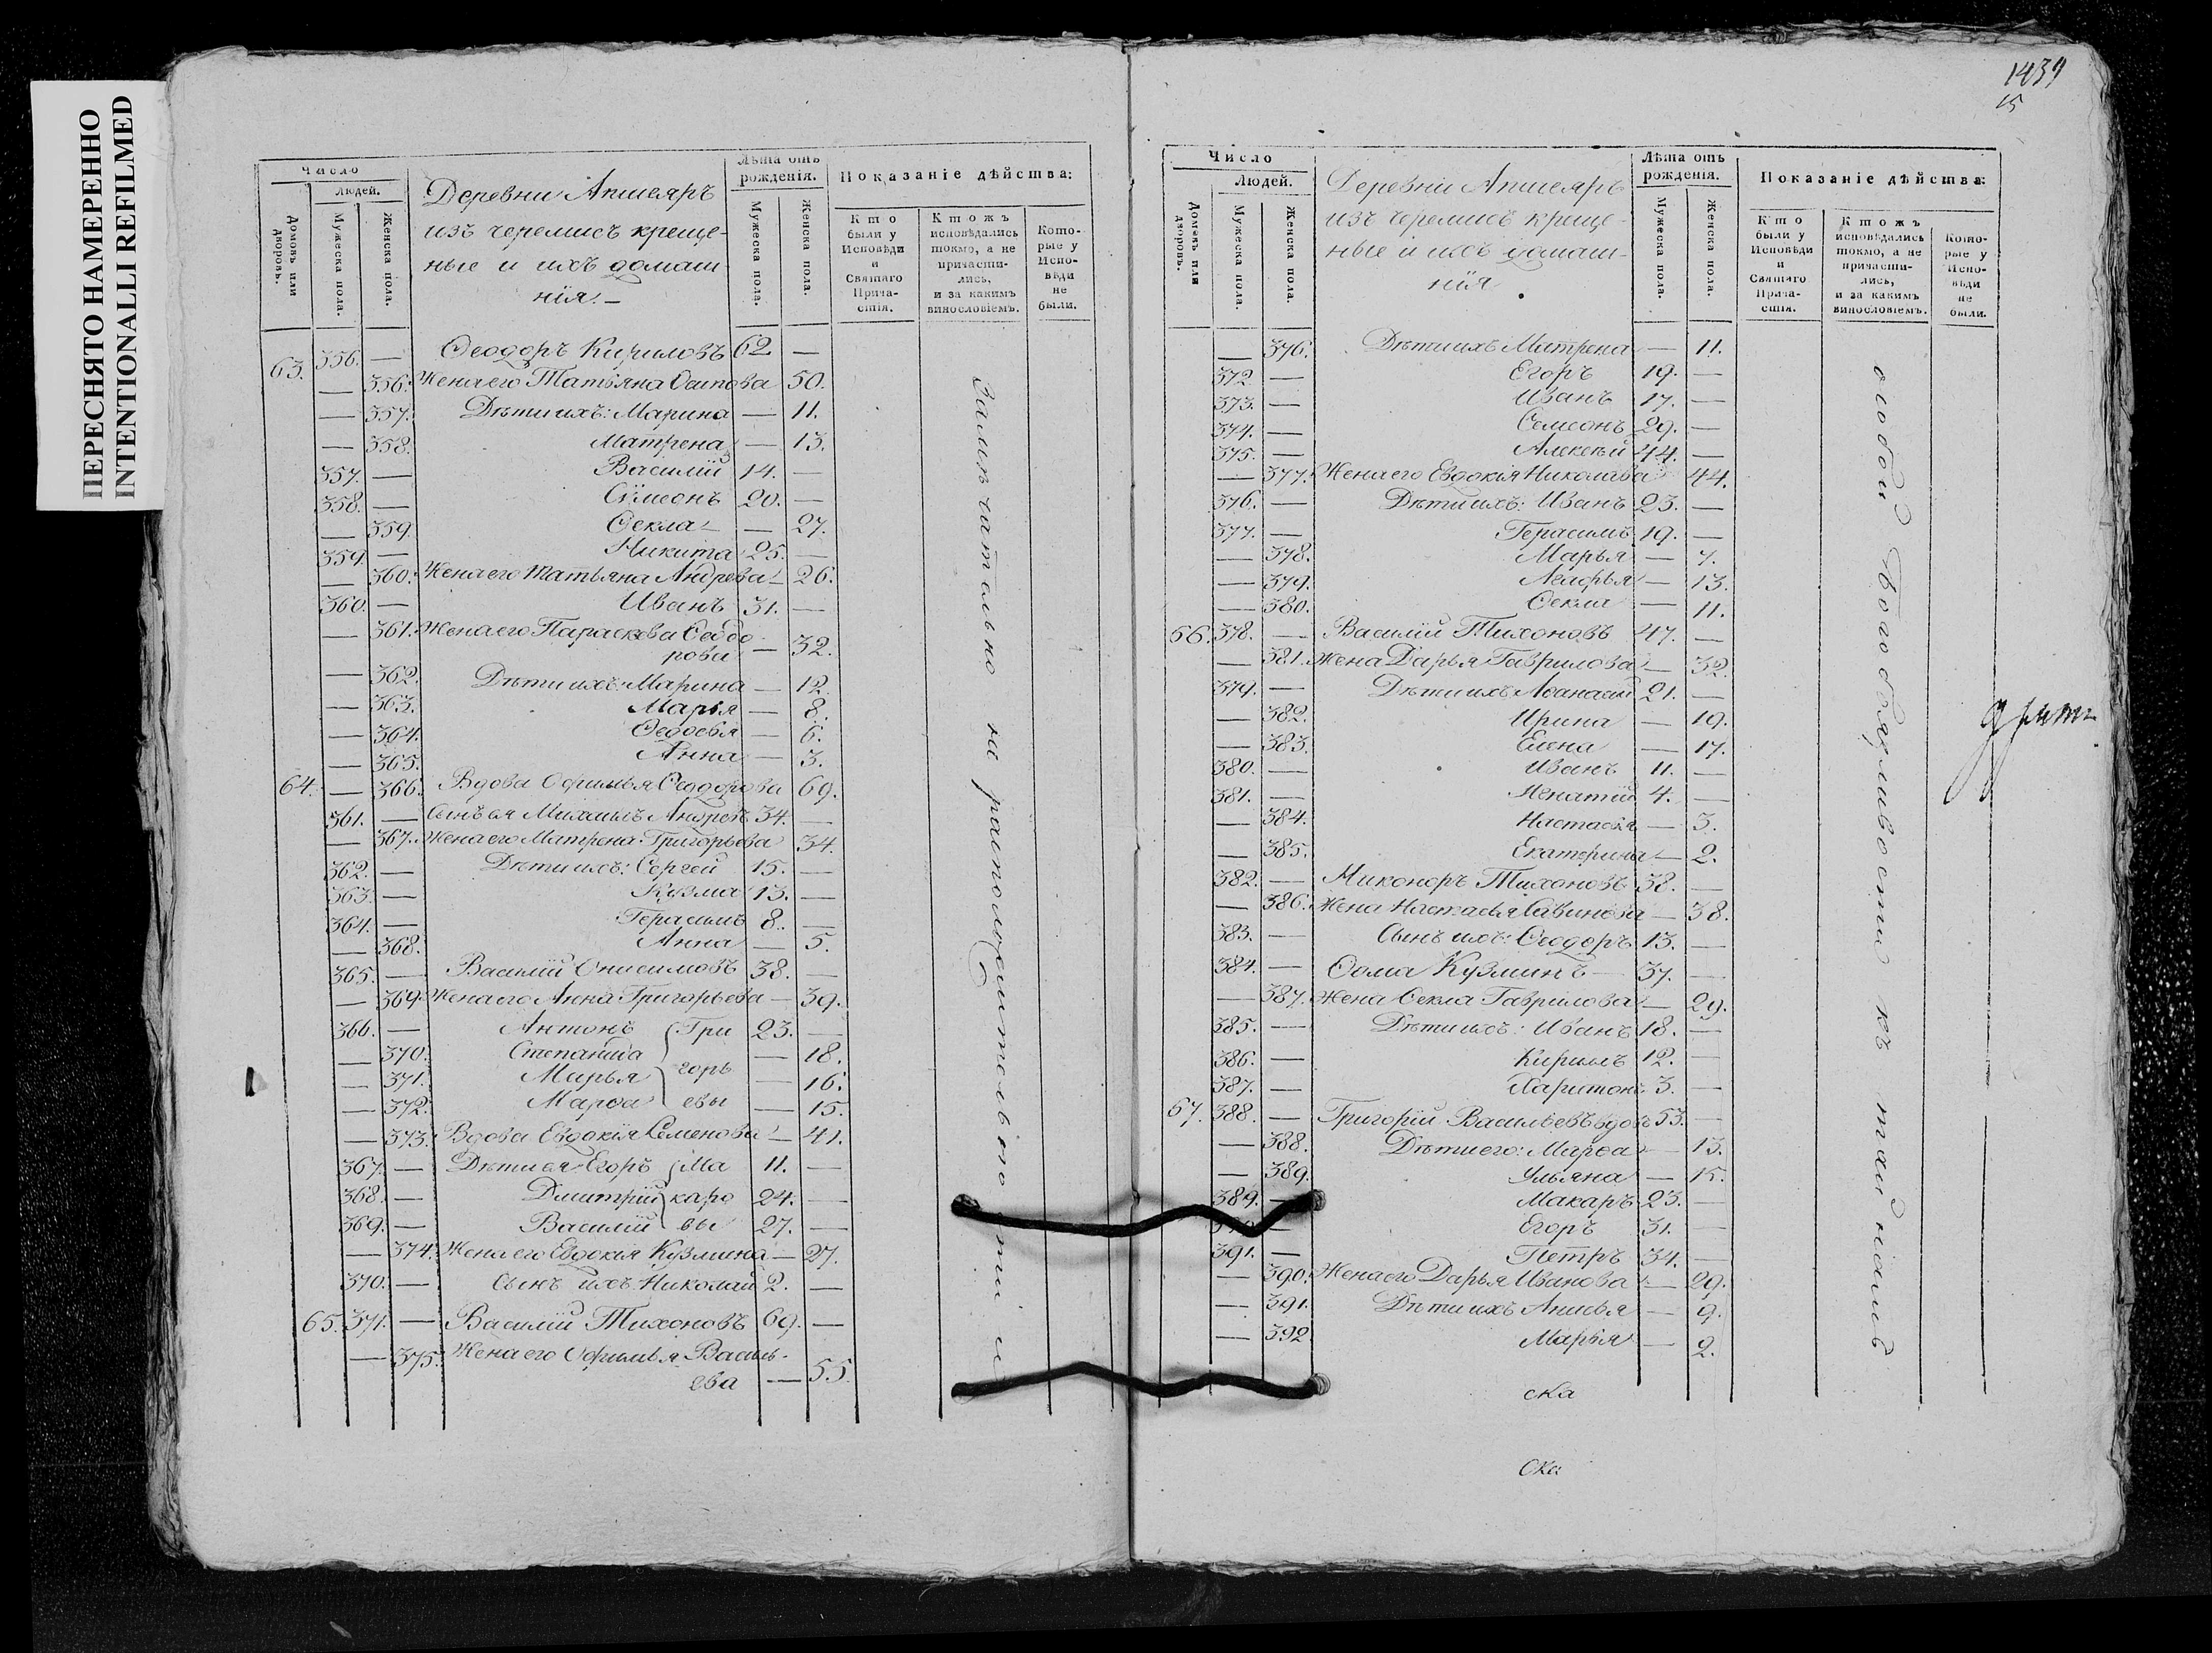 ПЕРЕСНЯТО НАМЕРЕННО
INTENTIONALLI REFILMED
Число
Людей.
Домовъ или дворовъ.
Мужеска пола.
Женска пола.
Деревни Апшеяръ
изъ черемисъ креще-
ные и ихъ домаш
нія
Лѣта отъ рожденія.
Мужеска пола.
Женска пола.
Показаніе дѣйства:
Кто были у Исповѣди и Святаго Прича-стія.
Ктожъ исповѣдались токмо, а не причасти-лись, и за какимъ винословіемъ.
Кото-рые у Испо-вѣди не были.
63. 356. — Ѳеодоръ Кириловъ 62 —
— 356. Жена его Татьяна Осипова 50.
— 357. Дѣти ихъ: Марина — 11.
— 358. Матрена — 13.
357. — Василій 14. —
358. — Сѵмеонъ 20. —
— 359. Ѳекла — 27.
359. — Никита 25. —
— 360. Жена его Татьяна Андрева — 26.
360. — Иванъ 31. —
— 361. Жена его Параскева Ѳеодо
рова — 32.
— 362. Дѣти ихъ: Марина — 12.
— 363. Марья — 8.
— 364. Ѳедосья — 6.
— 365. Анна — 3.
64. — 366. Вдова Офимья Ѳеодорова 69.
361. — Сынъ ея Михаилъ Андрѣв 34. —
— 367. Жена его Матрена Григорьева 34.
362. — Дѣти ихъ: Сергей 15. —
363. — Кузма 13. —
364. — Герасимъ 8. —
— 368. Анна — 5.
365. — Василій Онисимовъ 38. —
— 369. Жена его Анна Григорьева — 39.
366. — Антонъ Гри 23. —
— 370. Степанида — 18.
— 371. Марья горь — 16.
— 372. Марѳа евы — 15.
— 373. Вдова Евдокія Семенова — 41.
367. — Дѣти ея Егоръ Ма 11. —
368. — Дмитрій каро 24. —
369. — Василій вы 27. —
— 374. Жена его Евдокія Кузмина — 27.
370. — Сынъ ихъ Николай 2. —
65. 371. — Василій Тихоновъ 69. —
— 375. Жена его Офимья Василь-
ева — 55.
Замѣчательно на расположительно
1439
15
Число
Людей.
Домовъ или дворовъ.
Мужеска пола.
Женска пола.
Деревни Апшеяръ
изъ черемисъ креще-
ные и ихъ домаш-
нія
Лѣта отъ рожденія.
Мужеска пола.
Женска пола.
Показаніе дѣйства:
Кто были у Исповѣди и Святаго Прича-стія.
Ктожъ исповѣдались токмо, а не причасти-лись, и за какимъ винословіемъ.
Кото-рые у Испо-вѣди не были.
— 376. Дѣти ихъ Матрена — 11.
372. — Егоръ 19. —
373. — Иванъ 17. —
374. — Семеонъ 29. —
375. — Алексѣй 44. —
— 377. Жена его Евдокія Николава 44.
376. — Дѣти ихъ: Иванъ 23. —
377. — Герасимъ 19. —
— 378. Марья — 7.
— 379. Агафья — 13.
— 380. Ѳекла — 11.
66. 378. — Василій Тихоновъ 47. —
— 381. Жена Дарья Гаврилова — 32.
379. — Дѣти ихъ Аѳанасій 21. —
— 382. Ирина — 19.
— 383. Елена — 17.
380. — Иванъ 11. —
381. — Игнатій 4. —
— 384. Настасья — 3.
— 385. Екатерина — 2.
382. — Никоноръ Тихоновъ 38. —
— 386. Жена Настасья Савинова — 38.
383. — Сынъ ихъ: Ѳеодоръ 13. —
384. — Ѳома Кузминъ 37. —
— 387. Жена Ѳекла Гаврилова — 29.
385. — Дѣти ихъ: Иванъ 18. —
386. — Кирилъ 12. —
387. — Харитонъ 3. —
67. 388. — Григорій Васильевъ вдовъ 53. —
— 388. Дѣти его: Марѳа — 13.
— 389. Ульяна — 15.
389. — Макаръ 23. —
— Егоръ 31. —
391. — Петръ 34. —
— 390. Жена его Дарья Иванова — 29.
— 391. Дѣти ихъ Анисья — 9.
— 392 Марья — 2.
особой къ
ска
ска